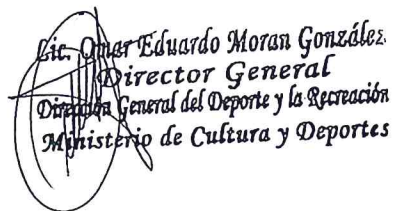 Lic. Omar Eduardo Moran González
Director General
Dirección General del Deporte y la Recreación
Ministerio de Cultura y Deportes